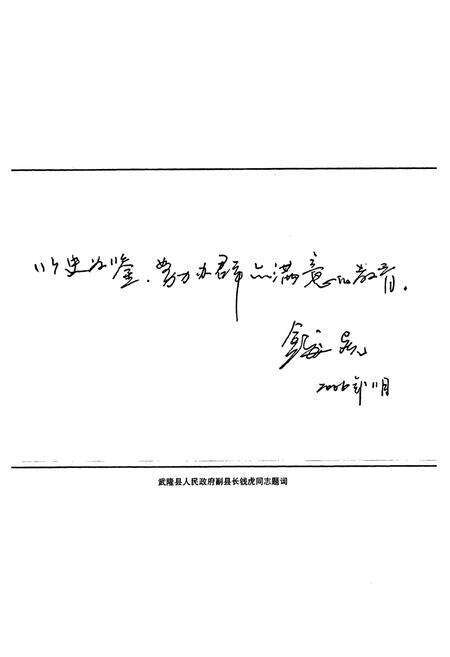 以史为鉴，努力办群众满意的教育。
钱虎
2006年11月
武隆县人民政府副县长钱虎同志题词